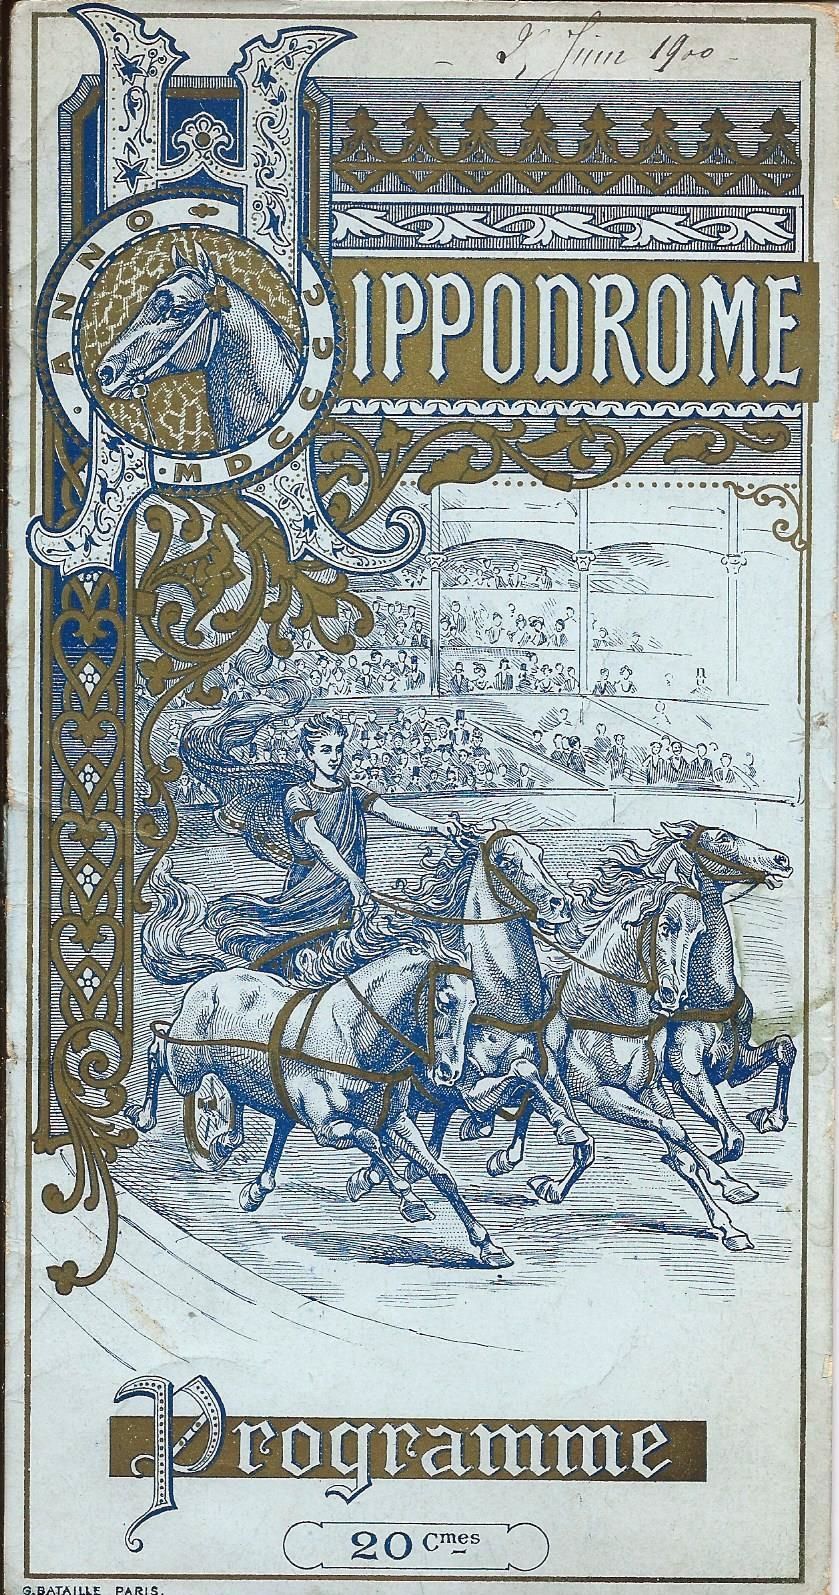 Juin 1900
HIPPODROME
ANNO
MDCCCC
Programme
20 Cmes
G. BATAILLE PARIS.